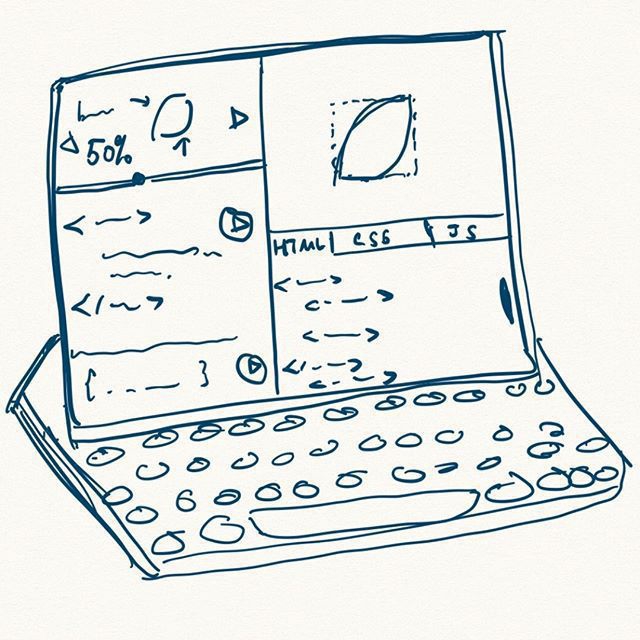 50%
HTML CSS JS